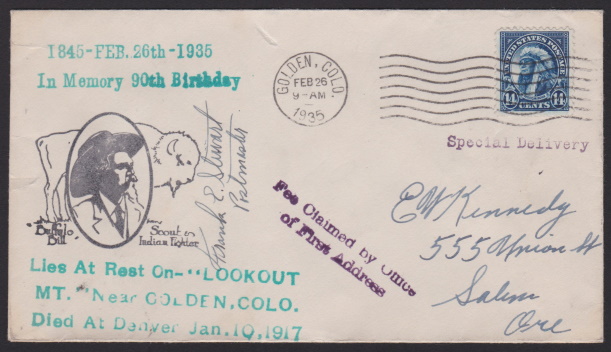 1845-FEB. 26th-1935
In Memory 90th Birthday
GOLDEN, COLO.
FEB 26
9-AM
1935
UNITED STATES POSTAGE
14 CENTS 14
Special Delivery
"Buffalo Bill"
Scout &
Indian Fighter
Frank E. Stewart
Postmaster
Fee Claimed by Office
of First Address
EW Kennedy
555 Union St
Salem
Ore
Lies At Rest On-"LOOKOUT
MT." Near GOLDEN, COLO.
Died At Denver Jan. 10, 1917